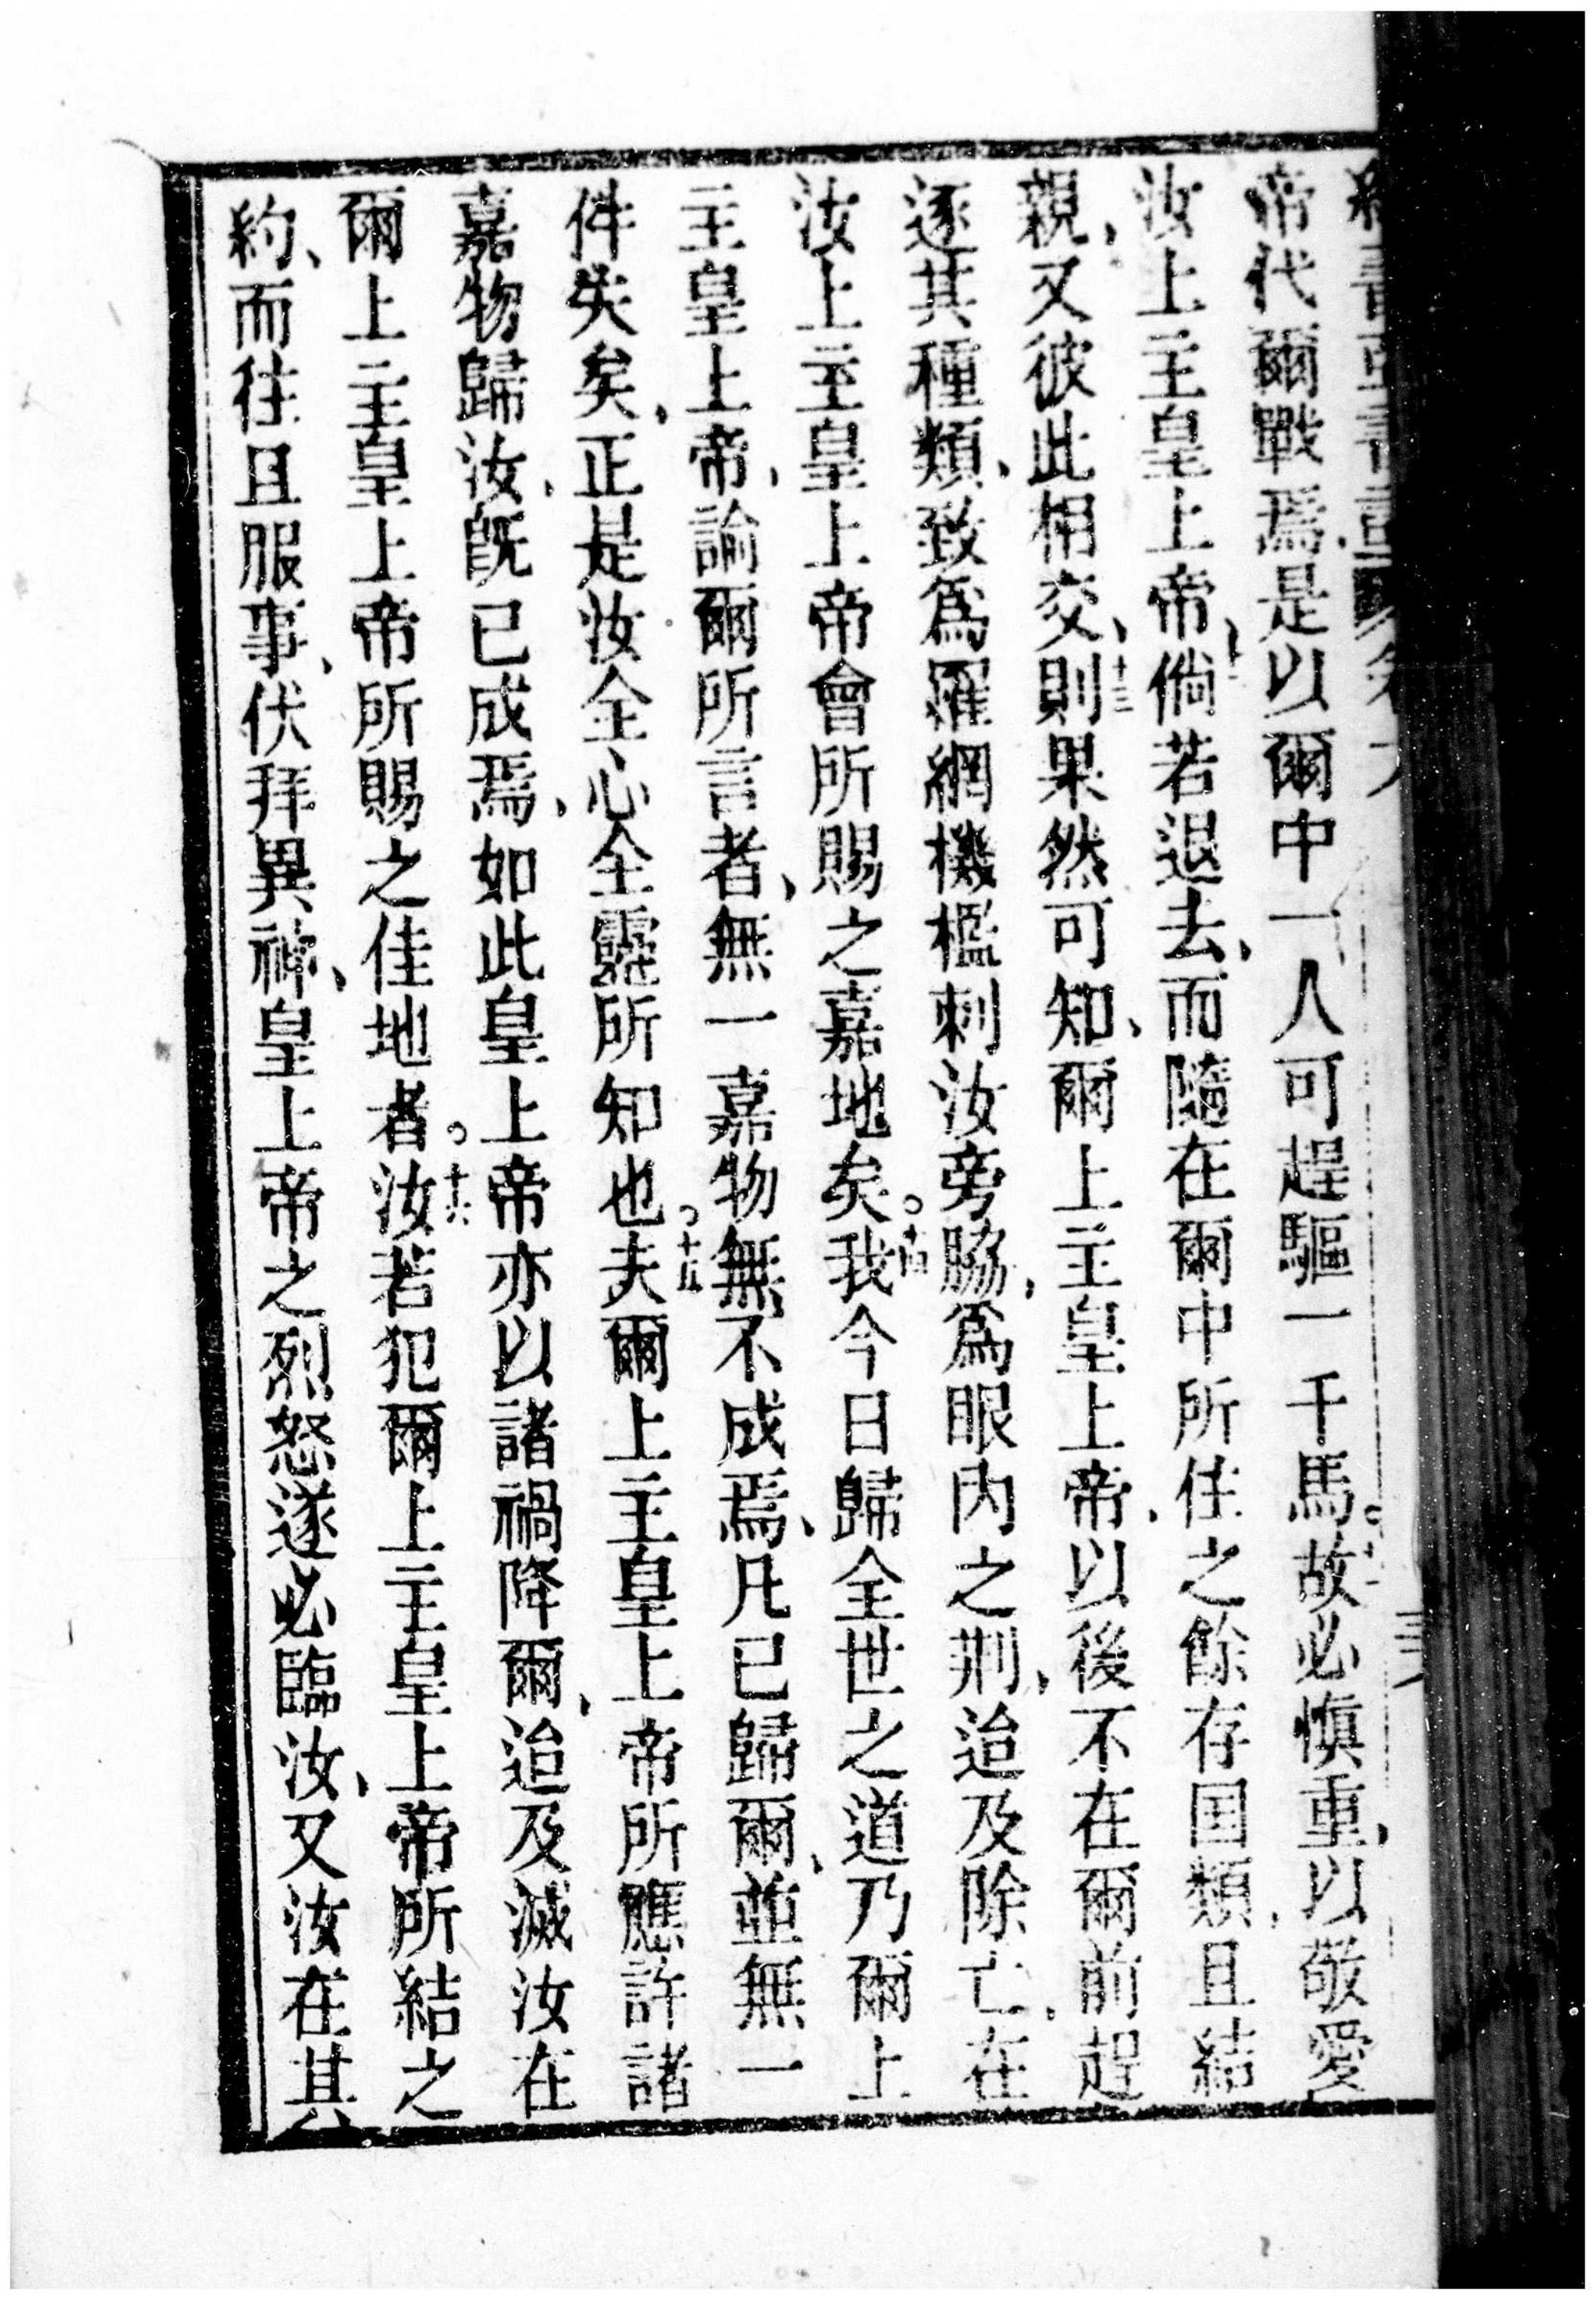 帝代爾戰焉、是以爾中一人可趕驅一千馬。故必愼重、以敬愛
汝上主皇上帝、倘若退去、而隨在爾中所住之餘存国類、且結
親、又彼此相交、十三則果然可知、爾上主皇上帝、以後不在爾前趕
逐其種類、致爲羅網機檻刺汝旁脇、爲眼内之荆、迨及除亡、在
汝上主皇上帝會所賜之嘉地矣。十四我今日歸全世之道乃爾上
主皇上帝、諭爾所言者、無一嘉物無不成焉、凡已歸爾、並無一
件失矣、正是汝全心全靈所知也。十五夫爾上主皇上帝所應許諸
嘉物歸汝、旣已成焉、如此皇上帝亦以諸禍降爾、迨及滅汝在
爾上主皇上帝所賜之佳地者。十六汝若犯爾上主皇上帝所結之
約、而往且服事、伏拜異神、皇上帝之烈怒遂必臨汝、又汝在其